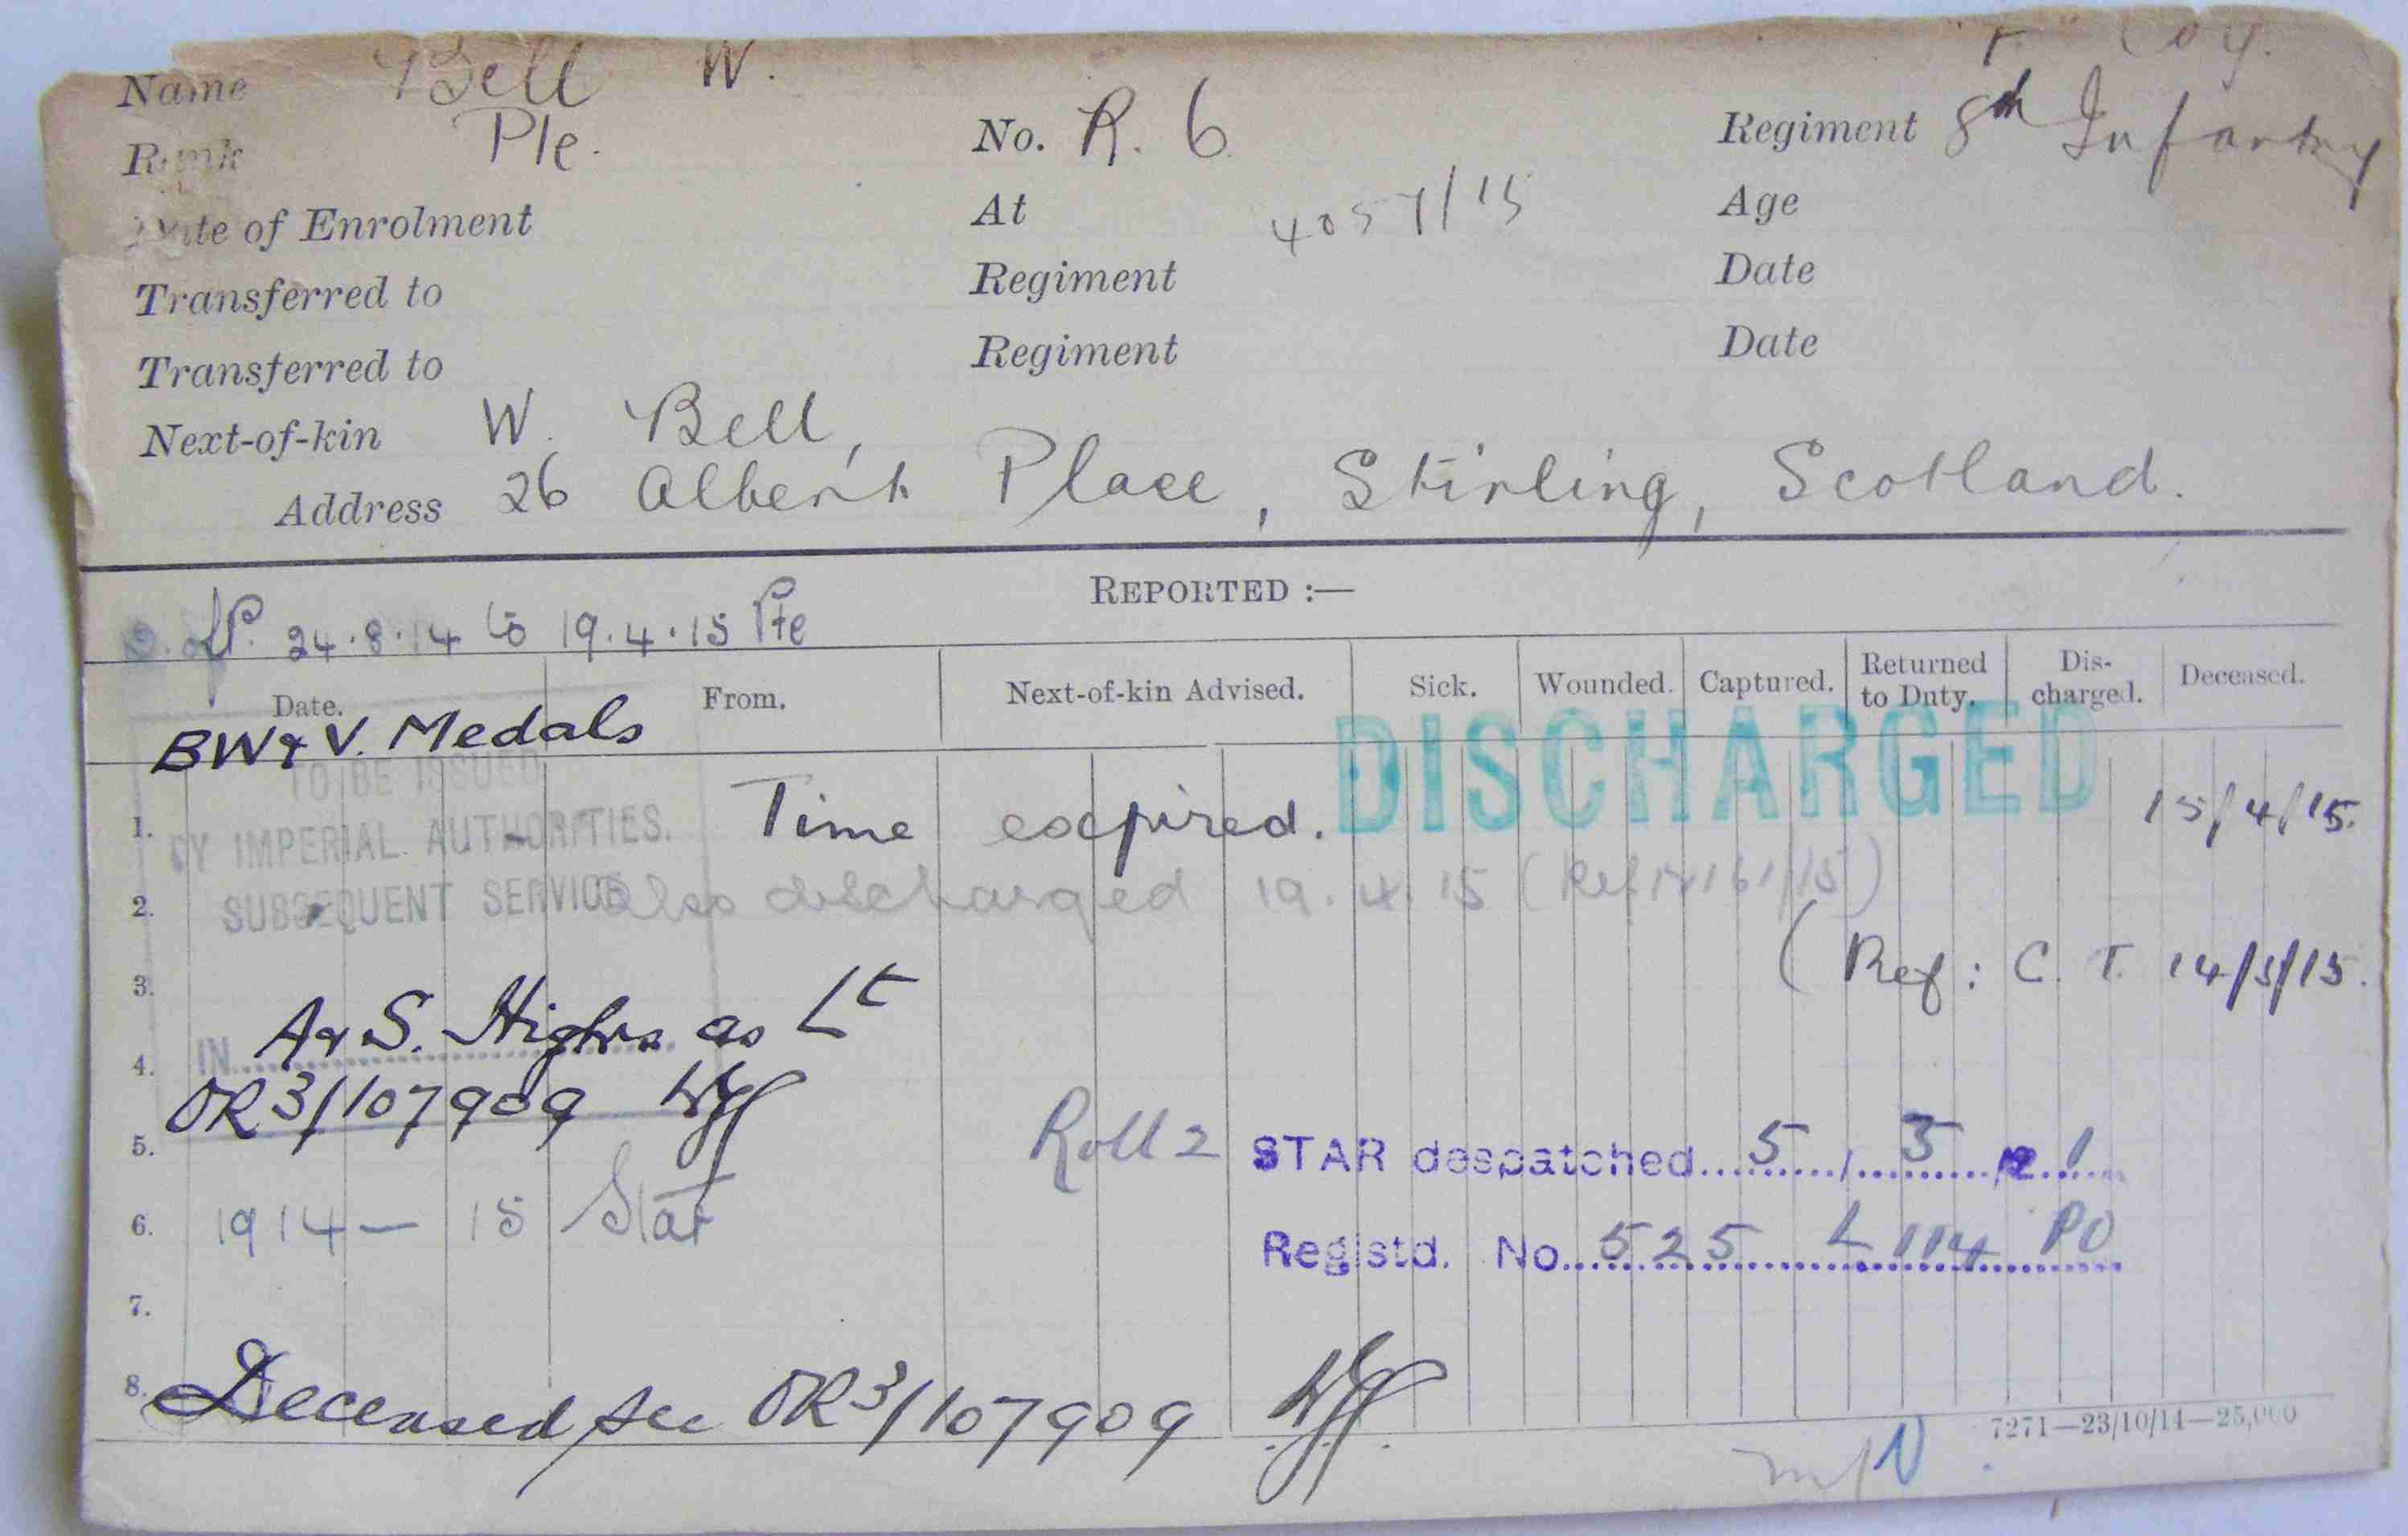 Coy.
Name Bell W.
Rank Pte. No. R. 6 Regiment 8th Infantry
Date of Enrolment At 4057/15 Age
Transferred to Regiment Date
Transferred to Regiment Date
Next-of-kin W. Bell,
Address 26 Albert Place, Stirling, Scotland.
REPORTED :—
24.8.14 to 19.4.15 Pte
Date. From. Next-of-kin Advised. Sick. Wounded. Captured. Returned to Duty. Dis-charged. Deceased.
BW & V. Medals
TO BE ISSUED
1. Time expired. DISCHARGED 15/4/15.
BY IMPERIAL AUTHORITIES.
2. SUBSEQUENT SERVICE Also discharged 19.4.15 (Ref
3. (Ref: C. T. 14/5/15.
4. IN A & S. Highrs as Lt
OR3/107909
5. Roll 2 STAR despatched 5/3/21
6. 1914—15 Star
Registd. No. 525 L 114 PO
7.
8. Deceased see OR3/107909
7271—23/10/14—25,000